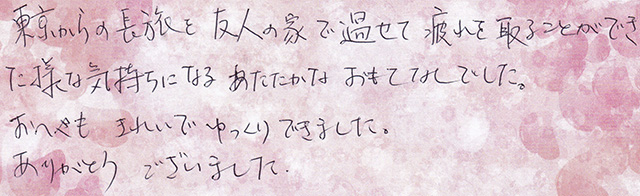 東京からの長旅を友人の家で過せて疲れを取ることができ
た様な気持ちになるあたたかなおもてなしでした。
おへやもきれいでゆっくりできました。
ありがとうございました.